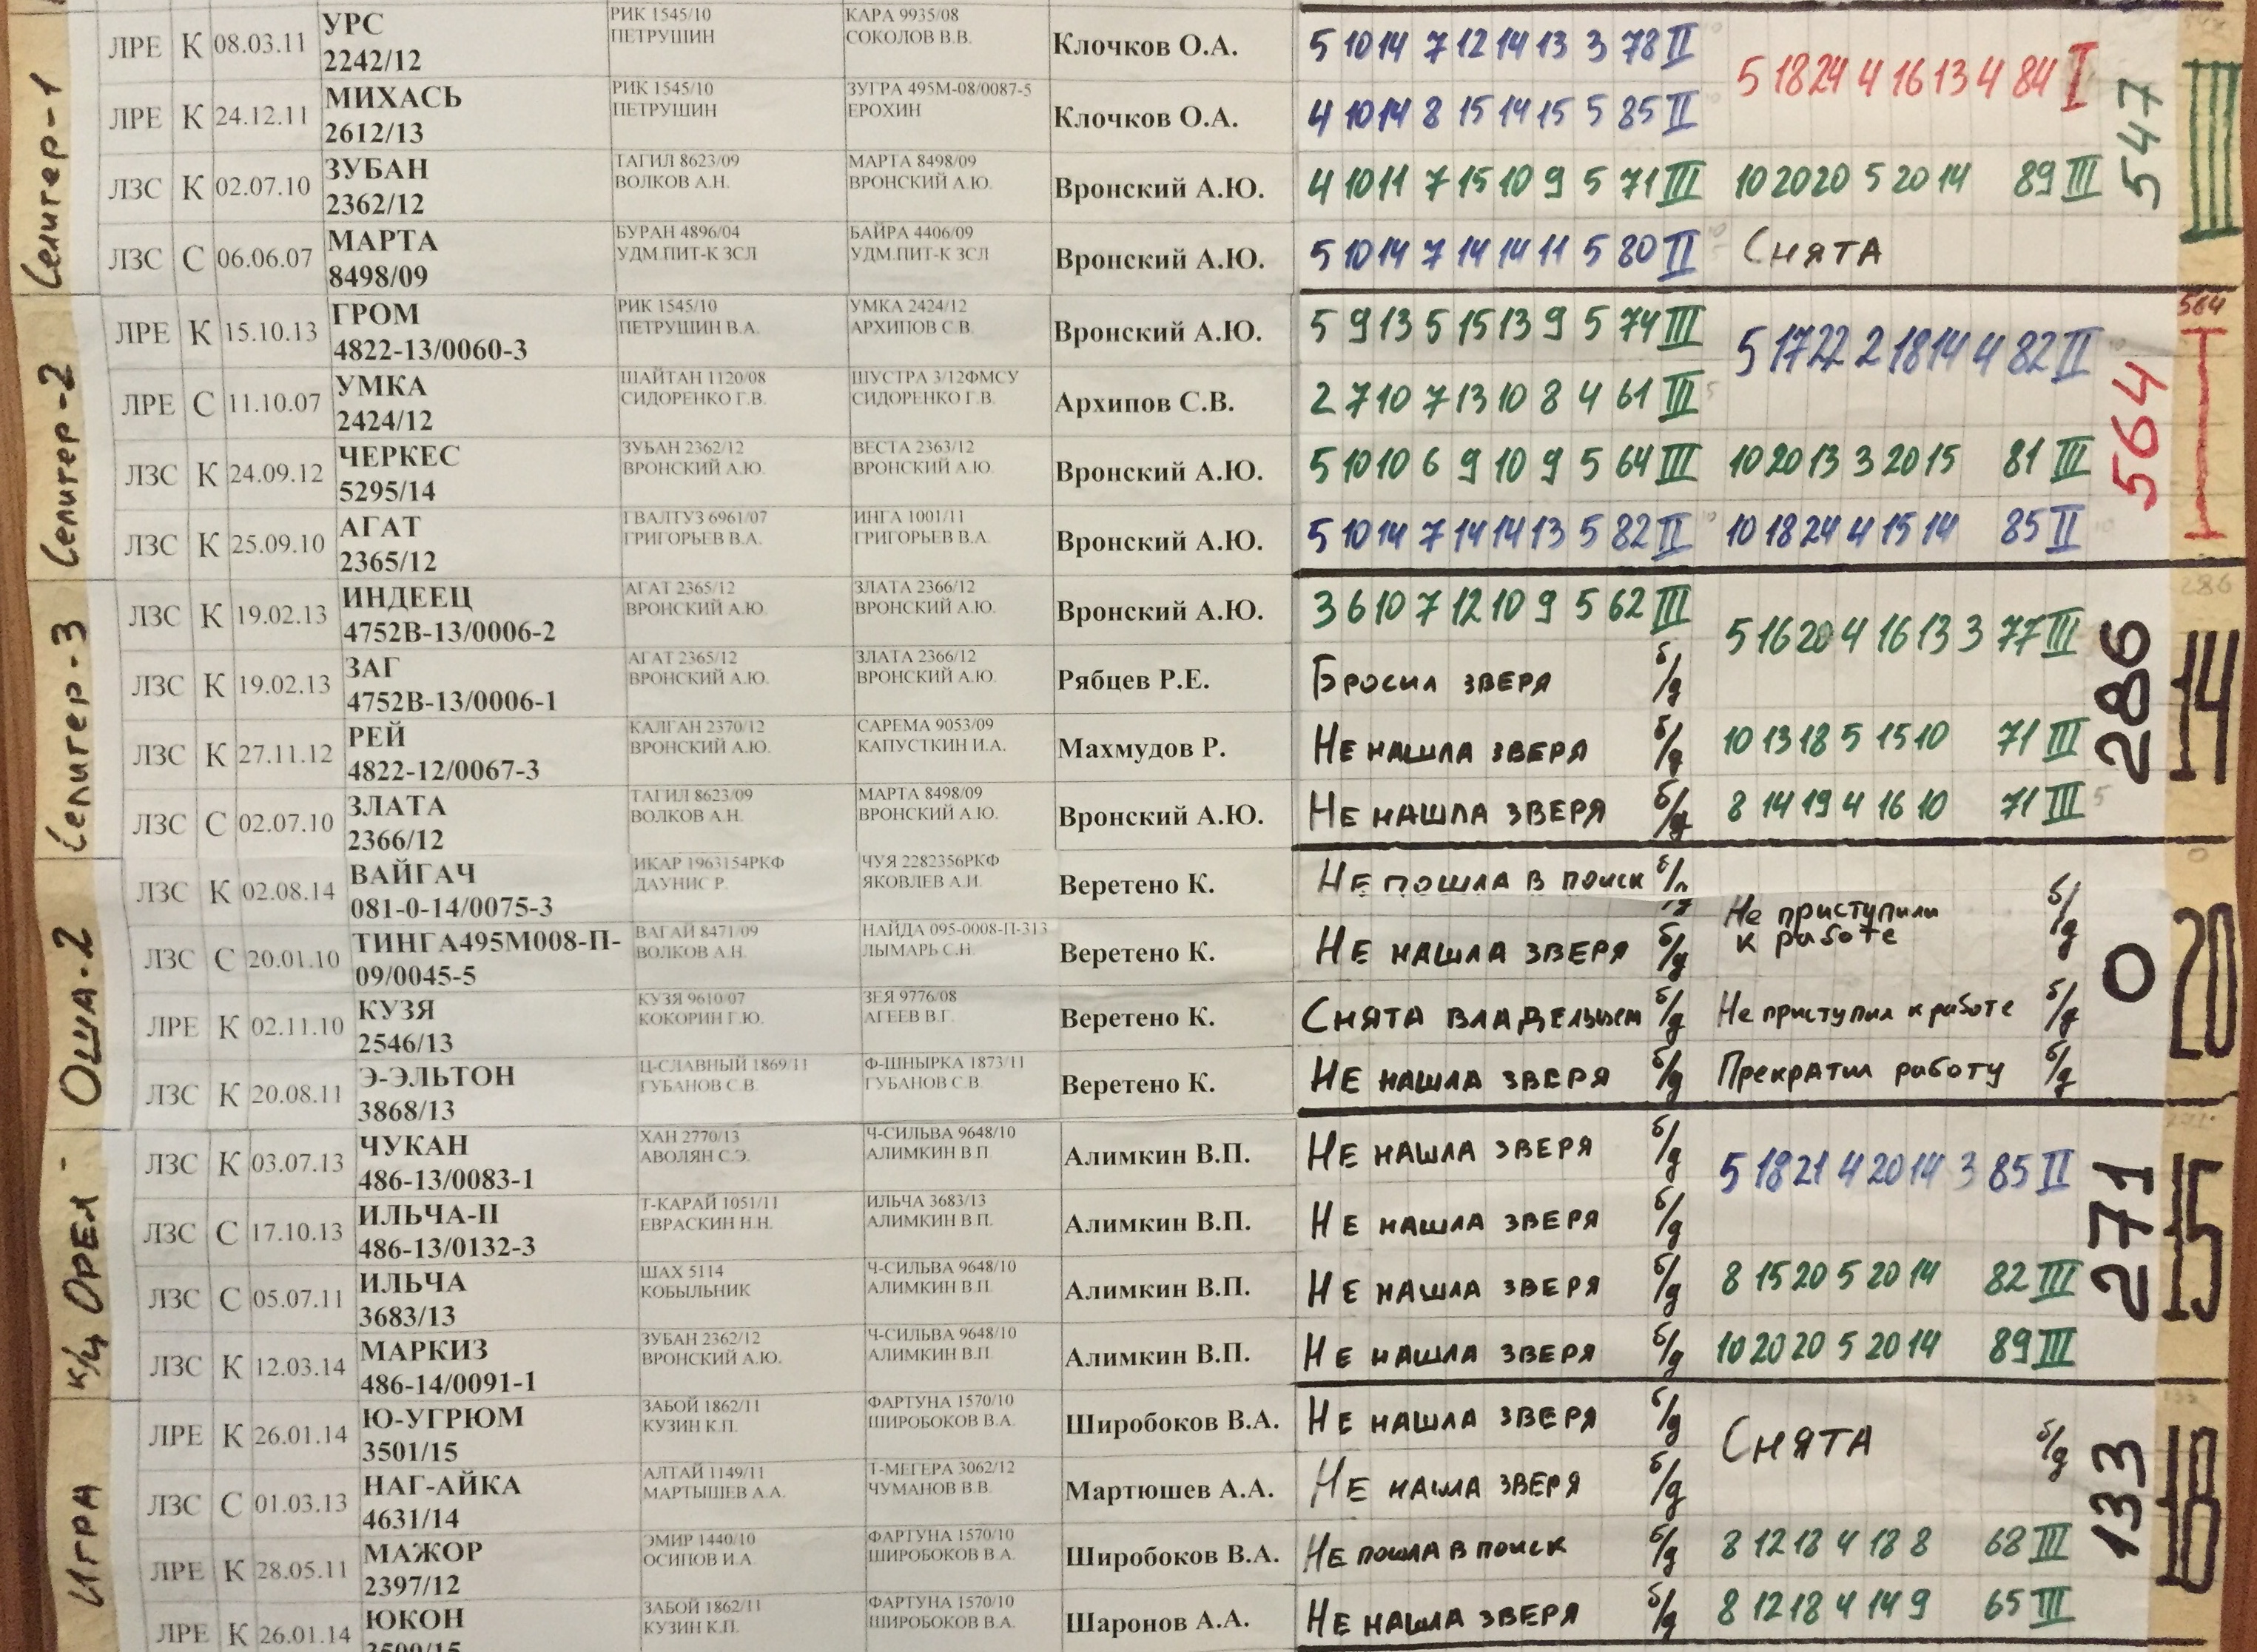 Селигер-1
ЛРЕ К 08.03.11 УРС 2242/12 РИК 1545/10 ПЕТРУШИН КАРА 9935/08 СОКОЛОВ В.В. Клочков О.А. 5 10 14 7 12 14 13 3 78 II
5 18 24 4 16 13 4 84 I
547 III
ЛРЕ К 24.12.11 МИХАСЬ 2612/13 РИК 1545/10 ПЕТРУШИН ЗУГРА 495М-08/0087-5 ЕРОХИН Клочков О.А. 4 10 14 8 15 14 15 5 85 II
ЛЗС К 02.07.10 ЗУБАН 2362/12 ТАГИЛ 8623/09 ВОЛКОВ А.Н. МАРТА 8498/09 ВРОНСКИЙ А.Ю. Вронский А.Ю. 4 10 11 7 15 10 9 5 71 III 10 20 20 5 20 14 89 III
ЛЗС С 06.06.07 МАРТА 8498/09 БУРАН 4896/04 УДМ.ПИТ-К ЗСЛ БАЙРА 4406/09 УДМ.ПИТ-К ЗСЛ Вронский А.Ю. 5 10 14 7 14 14 11 5 80 II Снята
Селигер-2
ЛРЕ К 15.10.13 ГРОМ 4822-13/0060-3 РИК 1545/10 ПЕТРУШИН В.А. УМКА 2424/12 АРХИПОВ С.В. Вронский А.Ю. 5 9 13 5 15 13 9 5 74 III
5 17 22 2 18 14 4 82 II
564
564 I
ЛРЕ С 11.10.07 УМКА 2424/12 ШАЙТАН 1120/08 СИДОРЕНКО Г.В. ШУСТРА 3/12ФМСУ СИДОРЕНКО Г.В. Архипов С.В. 2 7 10 7 13 10 8 4 61 III
ЛЗС К 24.09.12 ЧЕРКЕС 5295/14 ЗУБАН 2362/12 ВРОНСКИЙ А.Ю. ВЕСТА 2363/12 ВРОНСКИЙ А.Ю. Вронский А.Ю. 5 10 10 6 9 10 9 5 64 III 10 20 13 3 20 15 81 III
ЛЗС К 25.09.10 АГАТ 2365/12 ГВАЛТУЗ 6961/07 ГРИГОРЬЕВ В.А. ИНГА 1001/11 ГРИГОРЬЕВ В.А. Вронский А.Ю. 5 10 14 7 14 14 13 5 82 II 10 18 24 4 15 14 85 II
Селигер-3
ЛЗС К 19.02.13 ИНДЕЕЦ 4752В-13/0006-2 АГАТ 2365/12 ВРОНСКИЙ А.Ю. ЗЛАТА 2366/12 ВРОНСКИЙ А.Ю. Вронский А.Ю. 3 6 10 7 12 10 9 5 62 III
5 16 20 4 16 13 3 77 III
286
286 14
ЛЗС К 19.02.13 ЗАГ 4752В-13/0006-1 АГАТ 2365/12 ВРОНСКИЙ А.Ю. ЗЛАТА 2366/12 ВРОНСКИЙ А.Ю. Рябцев Р.Е. Бросил зверя б/д
ЛЗС К 27.11.12 РЕЙ 4822-12/0067-3 КАЛГАН 2370/12 ВРОНСКИЙ А.Ю. САРЕМА 9053/09 КАПУСТКИН И.А. Махмудов Р. Не нашла зверя б/д 10 13 18 5 15 10 71 III
ЛЗС С 02.07.10 ЗЛАТА 2366/12 ТАГИЛ 8623/09 ВОЛКОВ А.Н. МАРТА 8498/09 ВРОНСКИЙ А.Ю. Вронский А.Ю. Не нашла зверя б/д 8 14 19 4 16 10 71 III 5
Оша-2
ЛЗС К 02.08.14 ВАЙГАЧ 081-0-14/0075-3 ИКАР 1963154РКФ ДАУНИС Р. ЧУЯ 2282356РКФ ЯКОВЛЕВ А.И. Веретено К. Не пошла в поиск б/д
Не приступили к работе б/д
0
0 20
ЛЗС С 20.01.10 ТИНГА495М008-П-09/0045-5 ВАГАЙ 8471/09 ВОЛКОВ А.Н. НАЙДА 095-0008-П-313 ЛЫМАРЬ С.Н. Веретено К. Не нашла зверя б/д
ЛРЕ К 02.11.10 КУЗЯ 2546/13 КУЗЯ 9610/07 КОКОРИН Г.Ю. ЗЕЯ 9776/08 АГЕЕВ В.Г. Веретено К. Снята владельцем б/д Не приступил к работе б/д
ЛЗС К 20.08.11 Э-ЭЛЬТОН 3868/13 Ц-СЛАВНЫЙ 1869/11 ГУБАНОВ С.В. Ф-ШНЫРКА 1873/11 ГУБАНОВ С.В. Веретено К. Не нашла зверя б/д Прекратил работу б/д
к/ц Орел -
ЛЗС К 03.07.13 ЧУКАН 486-13/0083-1 ХАН 2770/13 АВОЛЯН С.Э. Ч-СИЛЬВА 9648/10 АЛИМКИН В.П. Алимкин В.П. Не нашла зверя б/д
5 18 21 4 20 14 3 85 II
271
271 15
ЛЗС С 17.10.13 ИЛЬЧА-II 486-13/0132-3 Т-КАРАЙ 1051/11 ЕВРАСКИН Н.Н. ИЛЬЧА 3683/13 АЛИМКИН В.П. Алимкин В.П. Не нашла зверя б/д
ЛЗС С 05.07.11 ИЛЬЧА 3683/13 ШАХ 5114 КОБЫЛЬНИК Ч-СИЛЬВА 9648/10 АЛИМКИН В.П. Алимкин В.П. Не нашла зверя б/д 8 15 20 5 20 14 82 III
ЛЗС К 12.03.14 МАРКИЗ 486-14/0091-1 ЗУБАН 2362/12 ВРОНСКИЙ А.Ю. Ч-СИЛЬВА 9648/10 АЛИМКИН В.П. Алимкин В.П. Не нашла зверя б/д 10 20 20 5 20 14 89 III
Игра
ЛРЕ К 26.01.14 Ю-УГРЮМ 3501/15 ЗАБОЙ 1862/11 КУЗИН К.П. ФАРТУНА 1570/10 ШИРОБОКОВ В.А. Широбоков В.А. Не нашла зверя б/д
Снята б/д
133
133 18
ЛЗС С 01.03.13 НАГ-АЙКА 4631/14 АЛТАЙ 1149/11 МАРТЫШЕВ А.А. Т-МЕГЕРА 3062/12 ЧУМАНОВ В.В. Мартюшев А.А. Не нашла зверя б/д
ЛРЕ К 28.05.11 МАЖОР 2397/12 ЭМИР 1440/10 ОСИПОВ И.А. ФАРТУНА 1570/10 ШИРОБОКОВ В.А. Широбоков В.А. Не пошла в поиск б/д 8 12 18 4 18 8 68 III
ЛРЕ К 26.01.14 ЮКОН ЗАБОЙ 1862/11 КУЗИН К.П. ФАРТУНА 1570/10 ШИРОБОКОВ В.А. Шаронов А.А. Не нашла зверя б/д 8 12 18 4 14 9 65 III